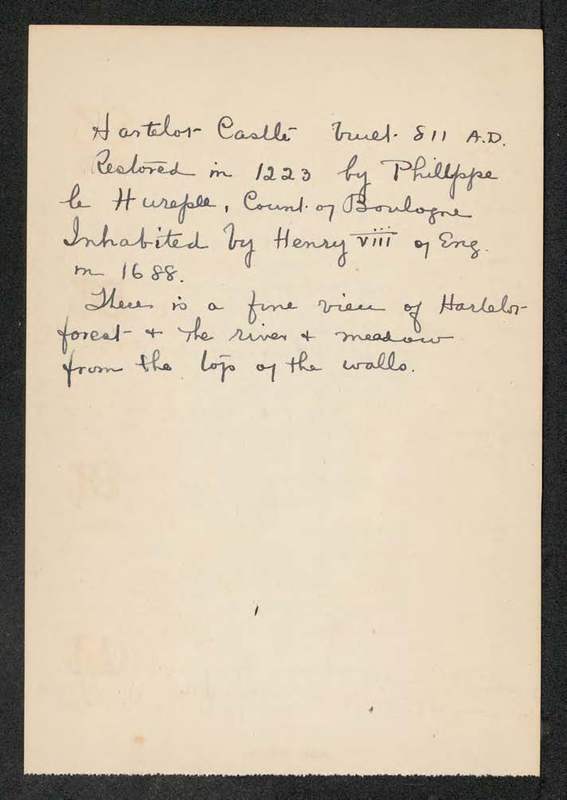 Hartelot Castle built 811 A.D.
Restored in 1223 by Phillippe
le Hureple, Count of Boulogne
Inhabited by Henry viii of Eng.
in 1688.
There is a fine view of Hartelot
forest + the river + meadow
from the top of the walls.